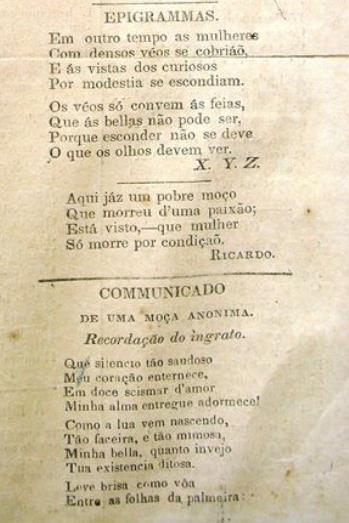 EPIGRAMMAS.
Em outro tempo as mulheres
Com densos véos se cobriaõ,
E ás vistas dos curiosos
Por modestia se escondiam.
Os véos só convem ás feias,
Que ás bellas não pode ser,
Porque esconder não se deve
O que os olhos devem ver.
X. Y. Z.
Aqui jáz um pobre moço
Que morreu d'uma paixão;
Está visto,—que mulher
Só morre por condiçaõ.
RICARDO.
COMMUNICADO
DE UMA MOÇA ANONIMA.
Recordação do ingrato.
Que silencio tão saudoso
Meu coração enternece,
Em doce scismar d'amor
Minha alma entregue adormece!
Como a lua vem nascendo,
Tão faceira, e tão mimosa,
Minha bella, quanto invejo
Tua existencia ditosa.
Leve brisa como vôa
Entre as folhas da palmeira: